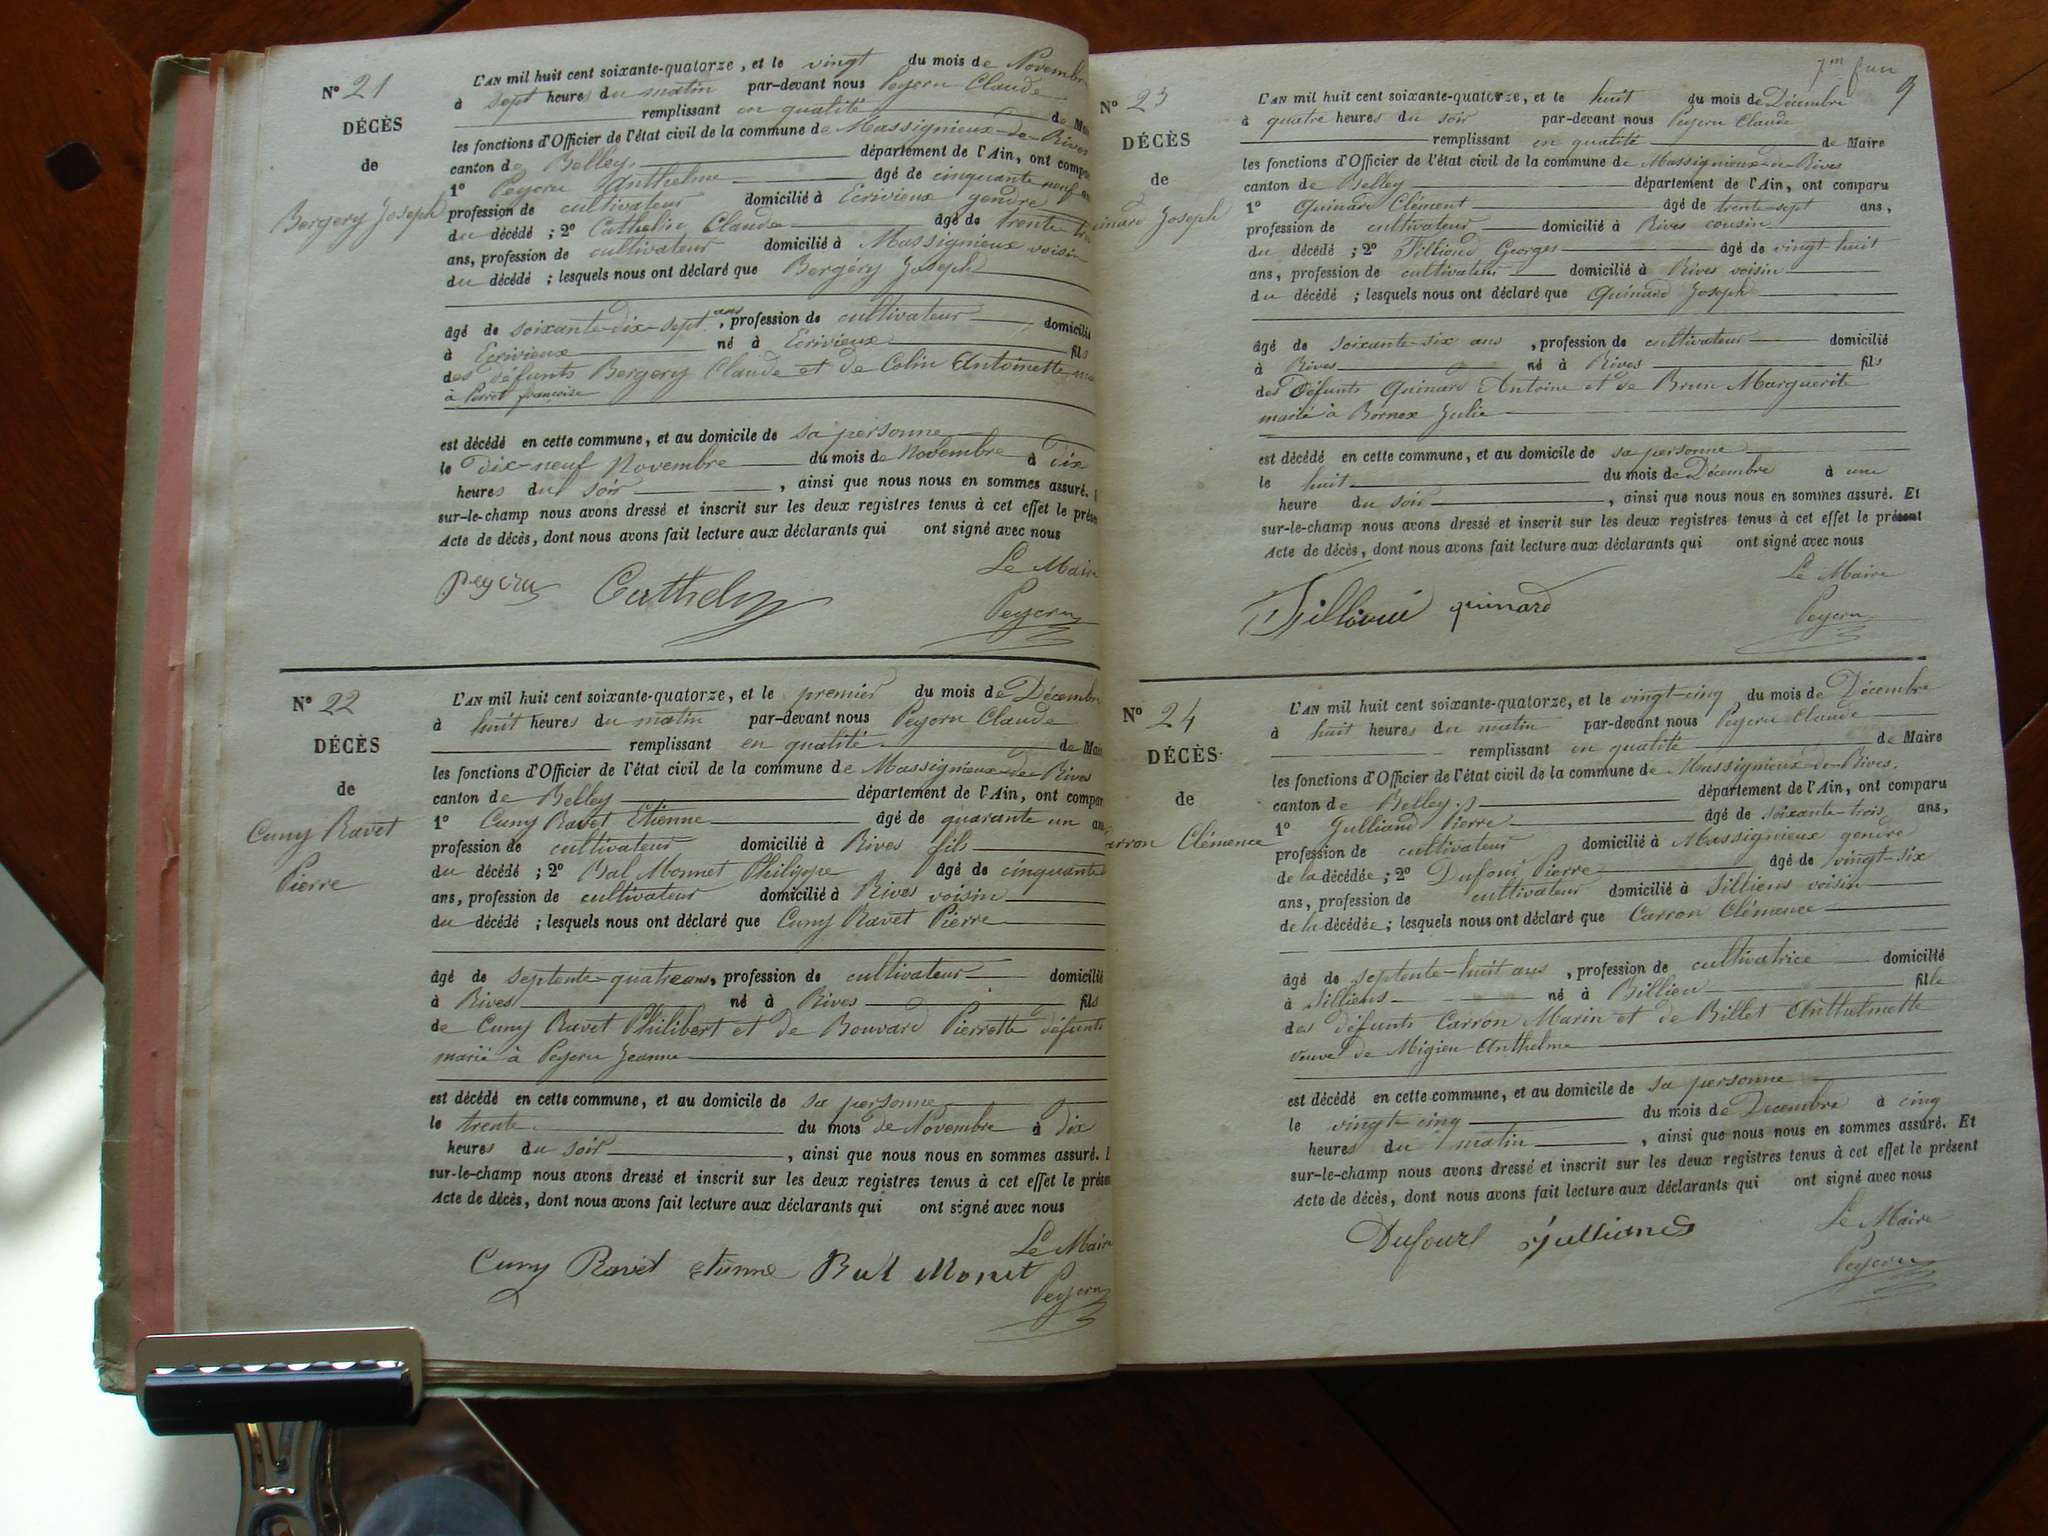 N° 21
DÉCÈS
de
Bergery Joseph
L'AN mil huit cent soixante-quatorze, et le vingt du mois de Novembre
à sept heures du matin par-devant nous Peycru Claude
remplissant en qualité de Mai
les fonctions d'Officier de l'état civil de la commune de Massignieux-de-Rives
canton de Belley département de l'Ain, ont compa
1° Peycru Anthelme âgé de cinquante neuf an
profession de cultivateur domicilié à Ecrivieux gendre
du décédé ; 2° Cathelin Claude âgé de trente tro
ans, profession de cultivateur domicilié à Massignieux voisin
du décédé ; lesquels nous ont déclaré que Bergéry Joseph
âgé de soixante-dix-sept ans, profession de cultivateur domicilié
à Ecrivieux né à Ecrivieux fils
des défunts Bergery Claude et de Colin Antoinette ma
à Perret françoise
est décédé en cette commune, et au domicile de sa personne
le Dix-neuf Novembre du mois de Novembre à Dix
heures du soir , ainsi que nous nous en sommes assuré.
sur-le-champ nous avons dressé et inscrit sur les deux registres tenus à cet effet le prése
Acte de décès, dont nous avons fait lecture aux déclarants qui ont signé avec nous
Le Maire
Peycru Cathelin Peycru
N° 22
DÉCÈS
de
Cuny Ravet
Pierre
L'AN mil huit cent soixante-quatorze, et le premier du mois de Décembre
à huit heures du matin par-devant nous Peycru Claude
remplissant en qualité de Mair
les fonctions d'Officier de l'état civil de la commune de Massignieux-de-Rives
canton de Belley département de l'Ain, ont compar
1° Cuny Ravet Etienne âgé de quarante un an
profession de cultivateur domicilié à Rives fils
du décédé ; 2° Bal Monnet Philippe âgé de cinquante
ans, profession de cultivateur domicilié à Rives voisin
du décédé ; lesquels nous ont déclaré que Cuny Ravet Pierre
âgé de septente-quatre ans, profession de cultivateur domicilié
à Rives né à Rives fils
de Cuny Ravet Philibert et de Bouvard Pierrette défunts
marié à Peycru Jeanne
est décédé en cette commune, et au domicile de sa personne
le trente du mois de Novembre à dix
heures du soir , ainsi que nous nous en sommes assuré.
sur-le-champ nous avons dressé et inscrit sur les deux registres tenus à cet effet le prése
Acte de décès, dont nous avons fait lecture aux déclarants qui ont signé avec nous
Le Maire
Cuny Ravet etienne Bal Monet Peycru
9
N° 23
DÉCÈS
de
inard Joseph
L'AN mil huit cent soixante-quatorze, et le huit du mois de Décembre
à quatre heures du soir par-devant nous Peycru Claude
remplissant en qualité de Maire
les fonctions d'Officier de l'état civil de la commune de Massignieux-de-Rives
canton de Belley département de l'Ain, ont comparu
1° Quinard Clément âgé de trente-sept ans,
profession de cultivateur domicilié à Rives cousin
du décédé ; 2° Tilliand Georges âgé de vingt-huit
ans, profession de cultivateur domicilié à Rives voisin
du décédé ; lesquels nous ont déclaré que Quinard Joseph
âgé de soixante-six ans , profession de cultivateur domicilié
à Rives né à Rives fils
des Défunts Quinard Antoine et de Brun Marguerite
marié à Bornex Julie
est décédé en cette commune, et au domicile de sa personne
le huit du mois de Décembre à une
heure du soir , ainsi que nous nous en sommes assuré. Et
sur-le-champ nous avons dressé et inscrit sur les deux registres tenus à cet effet le présent
Acte de décès, dont nous avons fait lecture aux déclarants qui ont signé avec nous
Le Maire
quinard Peycru
N° 24
DÉCÈS
de
arron Clémence
L'AN mil huit cent soixante-quatorze, et le vingt-cinq du mois de Décembre
à huit heures du matin par-devant nous Peycru Claude
remplissant en qualité de Maire
les fonctions d'Officier de l'état civil de la commune de Massignieux-de-Rives.
canton de Belley département de l'Ain, ont comparu
1° Julliand Pierre âgé de soixante-trois ans,
profession de cultivateur domicilié à Massignieux gendre
de la décédée ; 2° Dufour Pierre âgé de vingt-six
ans, profession de cultivateur domicilié à Silliens voisin
de la décédée ; lesquels nous ont déclaré que Carron Clémence
âgé de septente-huit ans , profession de cultivatrice domicilié
à Silliens né à Billieu fille
des défunts Carron Marin et de Billet Anthelmette
veuve de Migieu Anthelme
est décédé en cette commune, et au domicile de sa personne
le vingt-cinq du mois de Decembre à cinq
heures du matin , ainsi que nous nous en sommes assuré. Et
sur-le-champ nous avons dressé et inscrit sur les deux registres tenus à cet effet le présent
Acte de décès, dont nous avons fait lecture aux déclarants qui ont signé avec nous
Le Maire
Dufour Julliand Peycru